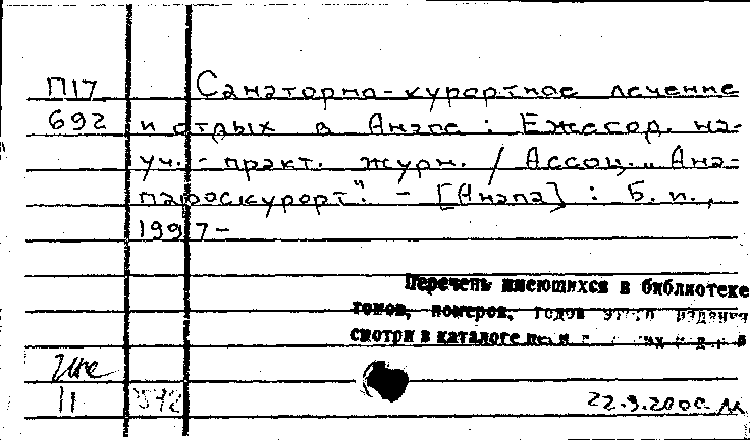 П17 Санаторно-курортное лечение
692 и отдых в Анапе : Ежегод. на-
уч.-практ. журн. / Ассоц. „Ана-
пароскурорт". - [Анапа] : Б. и.,
1997-
Перечень имеющихся в библиотеке
томов, номеров, годов этого издания
смотри в каталоге
11
22.3.2000